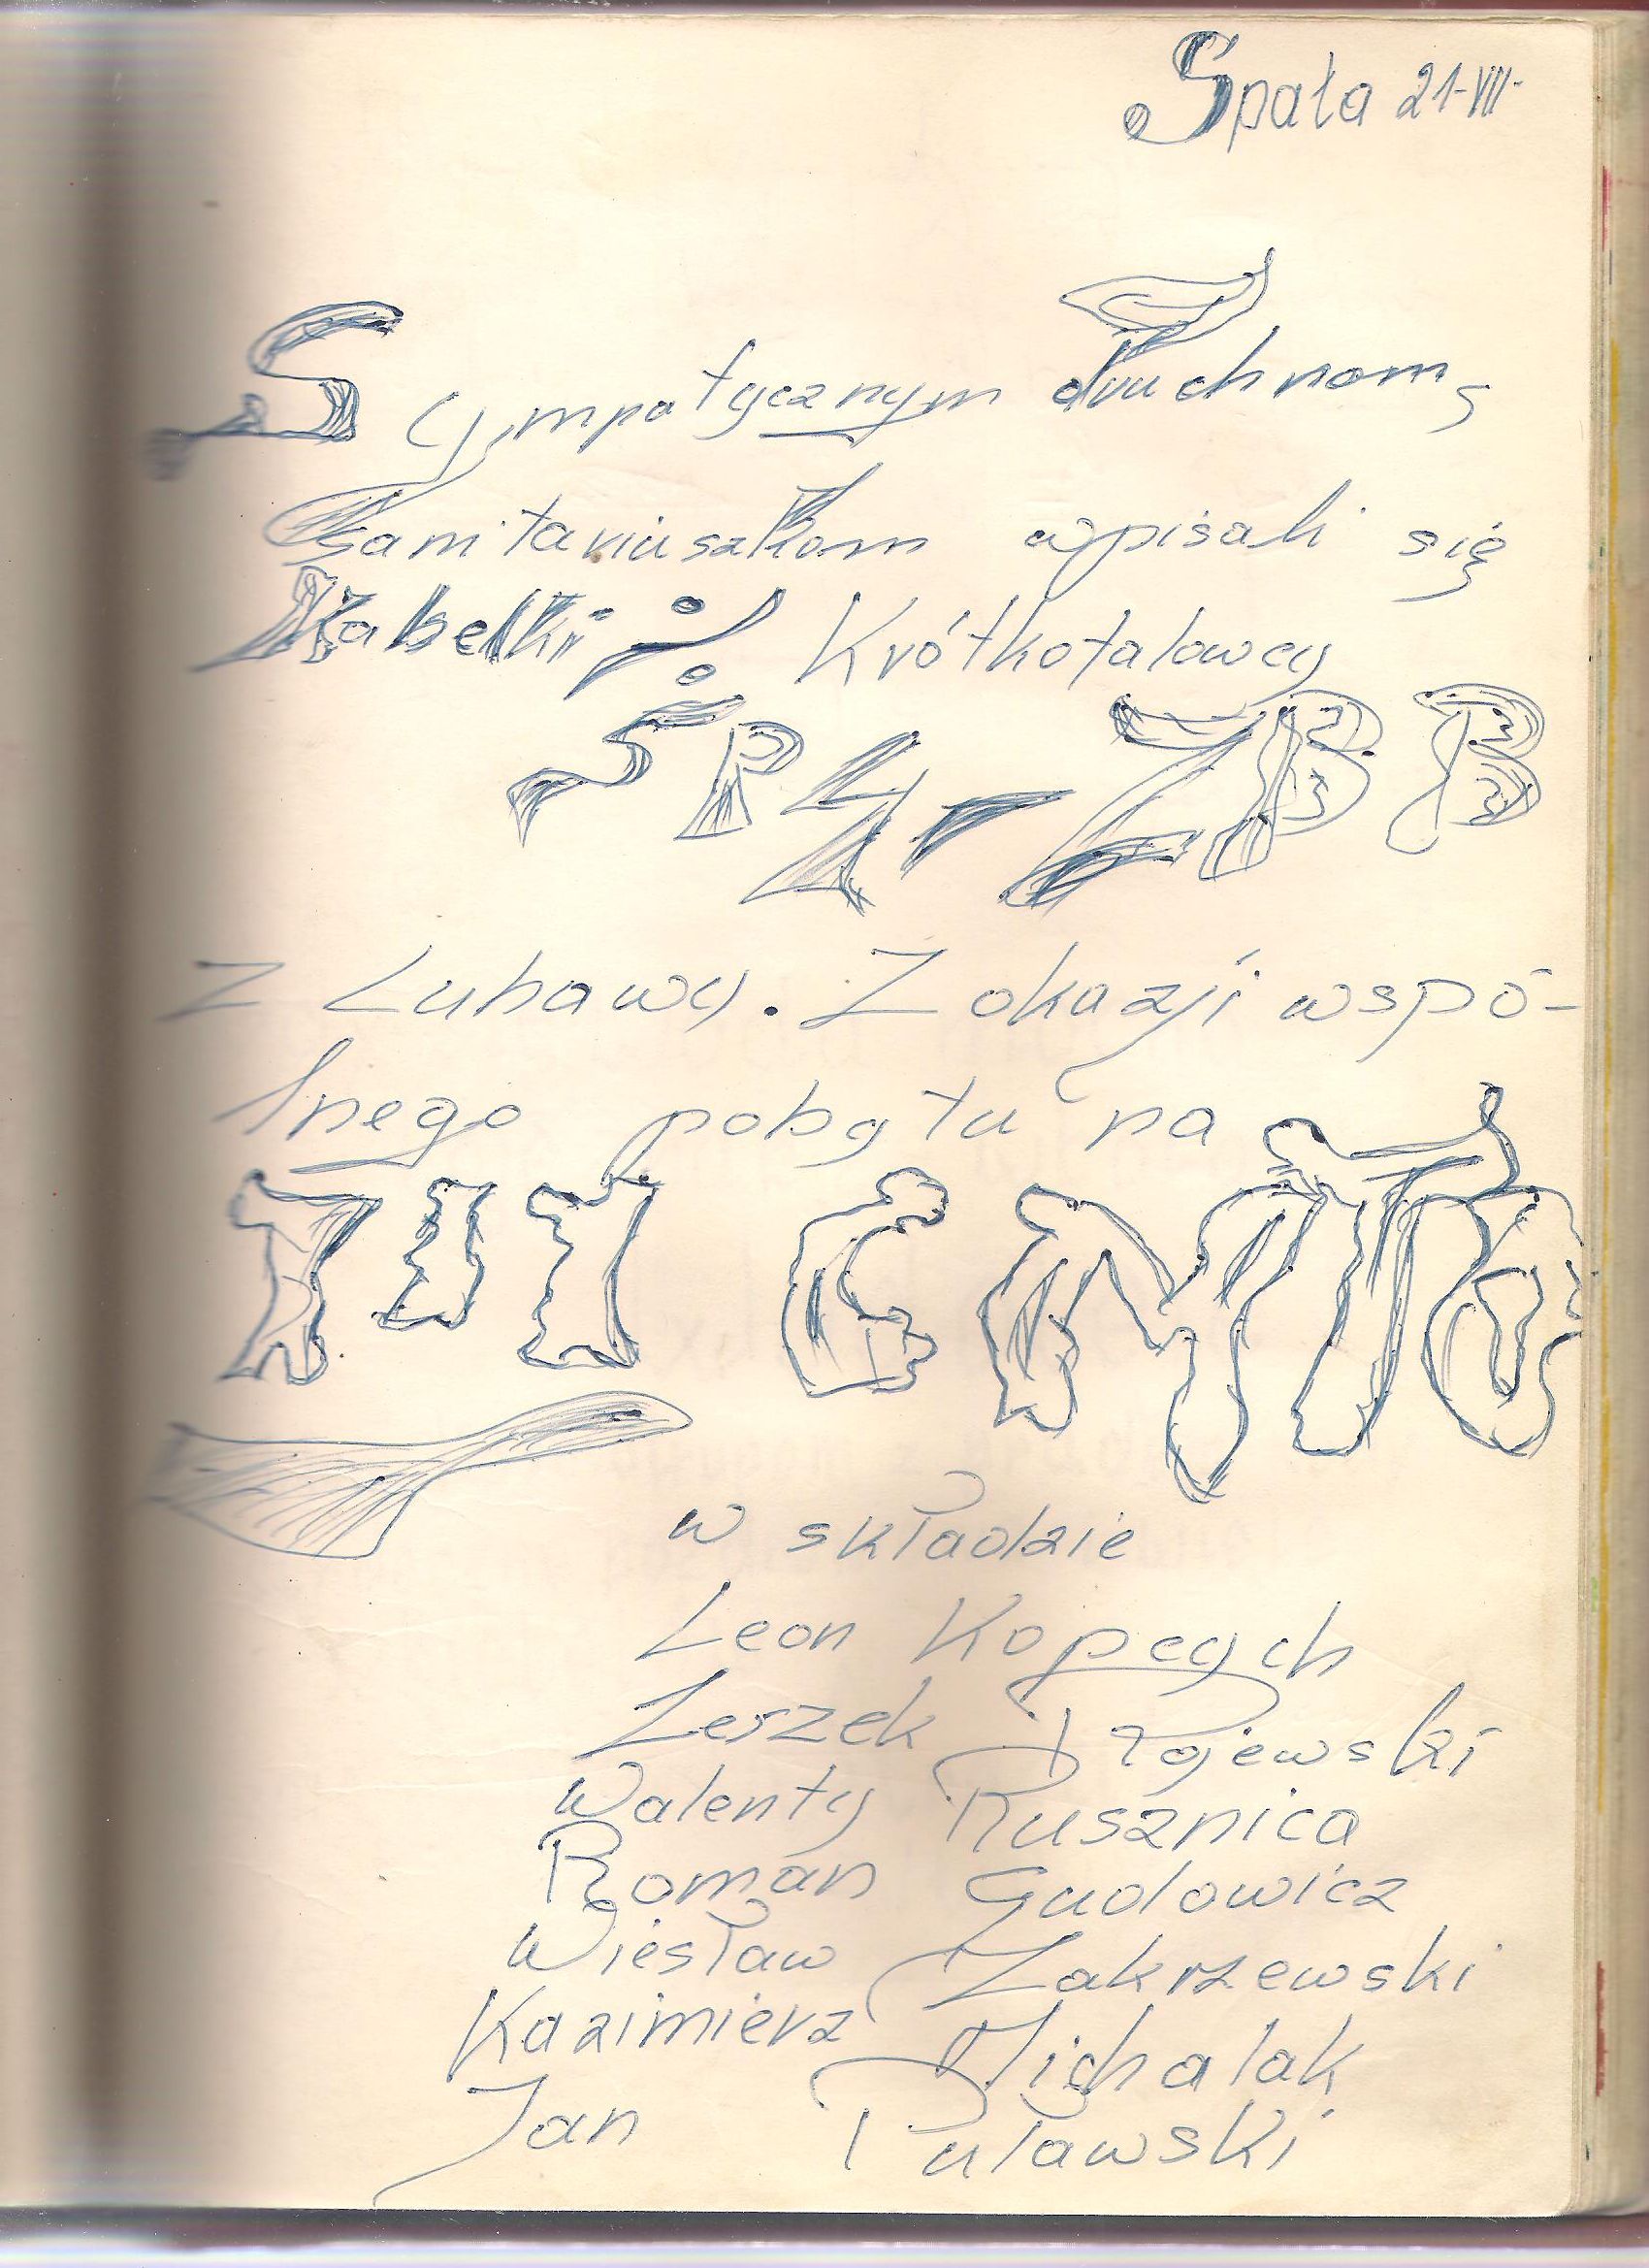 Spała 21-VII-
Sympatycznym druchnom,
Sanitariuszkom wpisali się
Krótkofalowcy
SP4-ZBB
z Lubawy. Z okazji wspó-
lnego pobytu na
III
w składzie
Leon Kopeych
Leszek
Walenty Rusznica
Roman Gudowicz
Wiesław Zakrzewski
Kazimierz Michalak
Jan Puławski